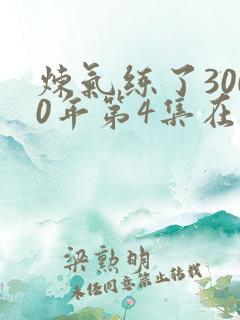 炼氣练了300
0年第4集在
梁勲明
未经同意禁止转载